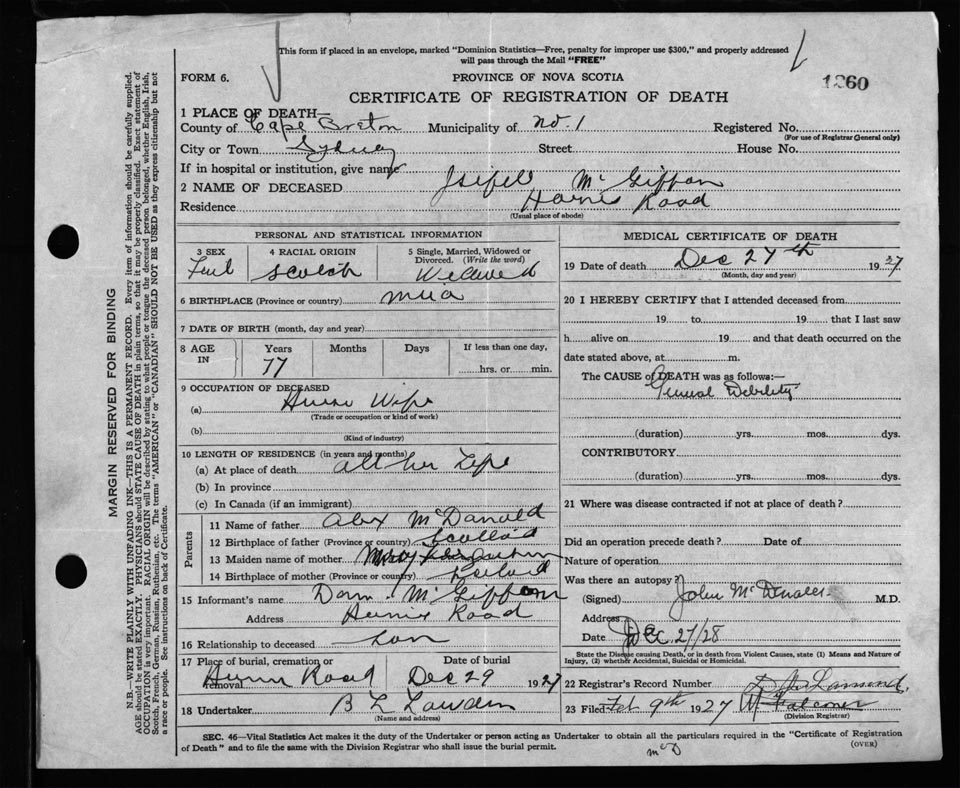 This form if placed in an envelope, marked "Dominion Statistics—Free, penalty for improper use $300," and properly addressed
will pass through the Mail "FREE"
FORM 6.
PROVINCE OF NOVA SCOTIA
1260
CERTIFICATE OF REGISTRATION OF DEATH
1 PLACE OF DEATH—
County of Cape Breton Municipality of No. 1 Registered No.
(For use of Registrar General only)
City or Town Sydney Street House No.
If in hospital or institution, give name
2 NAME OF DECEASED McGiffon
Residence Road
(Usual place of abode)
PERSONAL AND STATISTICAL INFORMATION
3 SEX
4 RACIAL ORIGIN Scotch
5 Single, Married, Widowed or Divorced. (Write the word)
6 BIRTHPLACE (Province or country) Mira
7 DATE OF BIRTH (month, day and year)
8 AGE IN Years 77 Months Days If less than one day, hrs. or min.
9 OCCUPATION OF DECEASED
(a) House Wife
(Trade or occupation or kind of work)
(b)
(Kind of industry)
10 LENGTH OF RESIDENCE (in years and months)
(a) At place of death all her Life
(b) In province
(c) In Canada (if an immigrant)
Parents
11 Name of father Alex McDanald
12 Birthplace of father (Province or country)
13 Maiden name of mother Mary
14 Birthplace of mother (Province or country)
15 Informant's name McGiffon
Address Road
16 Relationship to deceased Son
17 Place of burial, cremation or removal Road
Date of burial Dec 29 1927
18 Undertaker B L
(Name and address)
MEDICAL CERTIFICATE OF DEATH
19 Date of death Dec 27th 1927
(Month, day and year)
20 I HEREBY CERTIFY that I attended deceased from
19 to 19 that I last saw
h alive on 19 and that death occurred on the
date stated above, at m.
The CAUSE of DEATH was as follows:—
General Debility
(duration) yrs. mos. dys.
CONTRIBUTORY
(duration) yrs. mos. dys.
21 Where was disease contracted if not at place of death?
Did an operation precede death? Date of
Nature of operation
Was there an autopsy?
(Signed) John M.D.
Address
Date Dec. 27/28
State the Disease causing Death, or in death from Violent Causes, state (1) Means and Nature of
Injury, (2) whether Accidental, Suicidal or Homicidal.
22 Registrar's Record Number
23 Filed Feb 9th 1927 Falconer
(Division Registrar)
SEC. 46—Vital Statistics Act makes it the duty of the Undertaker or person acting as Undertaker to obtain all the particulars required in the "Certificate of Registration
of Death" and to file the same with the Division Registrar who shall issue the burial permit.
(OVER)
McD
MARGIN RESERVED FOR BINDING
N.B.—WRITE PLAINLY WITH UNFADING INK—THIS IS A PERMANENT RECORD. Every item of information should be carefully supplied.
AGE should be stated EXACTLY. PHYSICIANS should STATE CAUSE OF DEATH in plain terms, so that it may be properly classified. Exact statement of
OCCUPATION is very important. RACIAL ORIGIN will be described by stating to what people or tongue the deceased person belonged, whether English, Irish,
Scotch, French, German, Russian, Ruthenian, etc. The terms "AMERICAN" or "CANADIAN" SHOULD NOT BE USED as they express citizenship but not
a race or people. See instructions on back of Certificate.